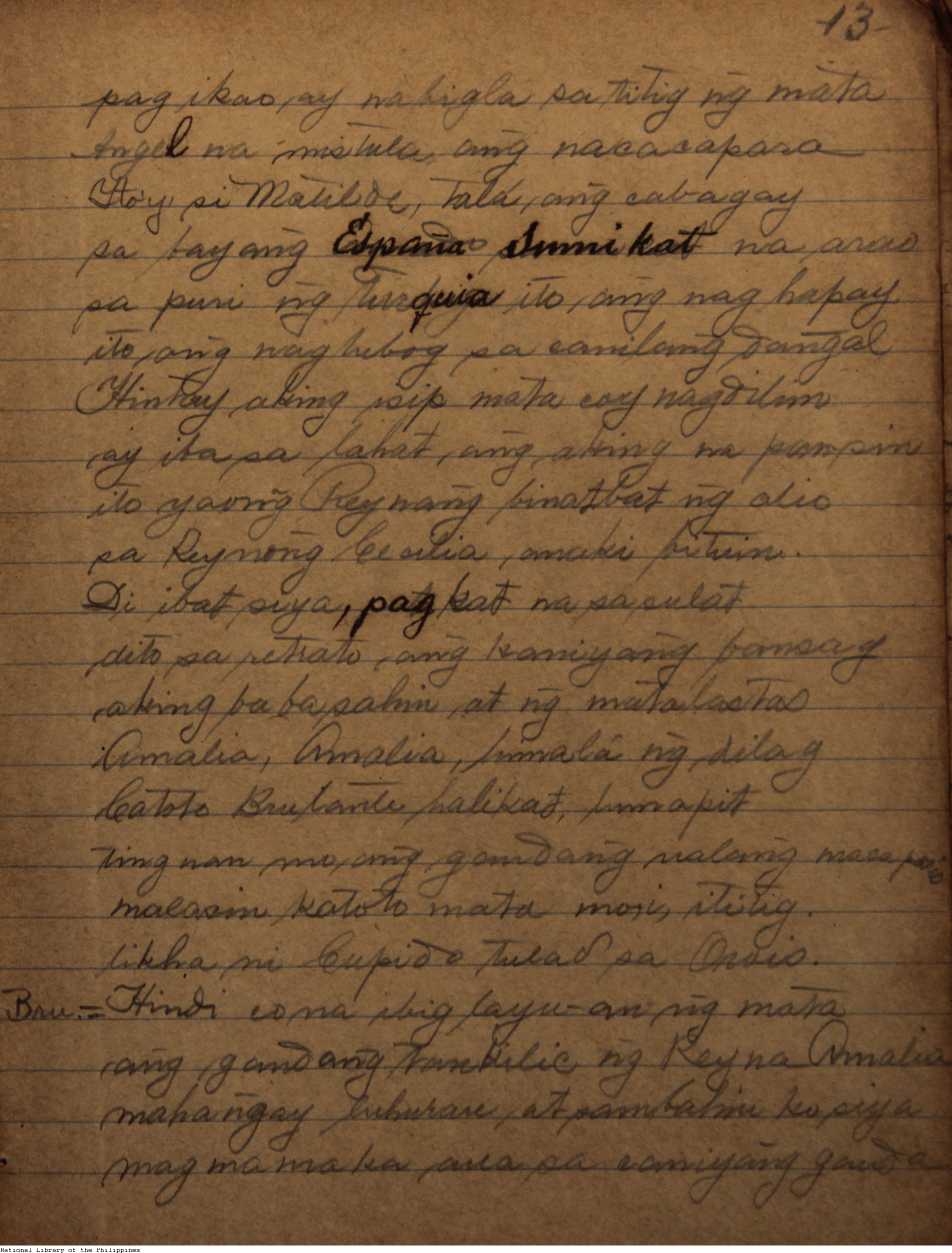 -13-
pag ikao, ay nabigla sa titig ng mata
Angel na mistula, ang nacacapara
Ito'y, si Matilde, tala, ang cabagay
sa bayang España sumikat na arao
sa puri ng turquia ito, ang nag hapay
ito, ang naglubog sa canilang dangal
Hintay aking isip mata coy nagdilim
ay iba sa lahat, ang aking na pansin
ito yaong Reynang binatbat ng
sa Reynong Cecilia, anaki bituin.
Di ibat siya, pagkat na sasulat
dito sa retrato, ang kaniyang bansag
aking babasahin at ng matalastas
Amalia, Amalia, lumalá ng dilag
Catoto Brutante halikat, lumapit
tingnan mo, ang gandang ualang macaparis
malasin katoto mata mosi, ititig.
likha ni Cupido tulad sa
Bru.= Hindi co na ibig layu-an ng mata
ang gandang ng Reyna Amalia
mahangay luhuran, at sambahin ko siya
mag mamaka aua sa caniyang ganda
National Library of the Philippines